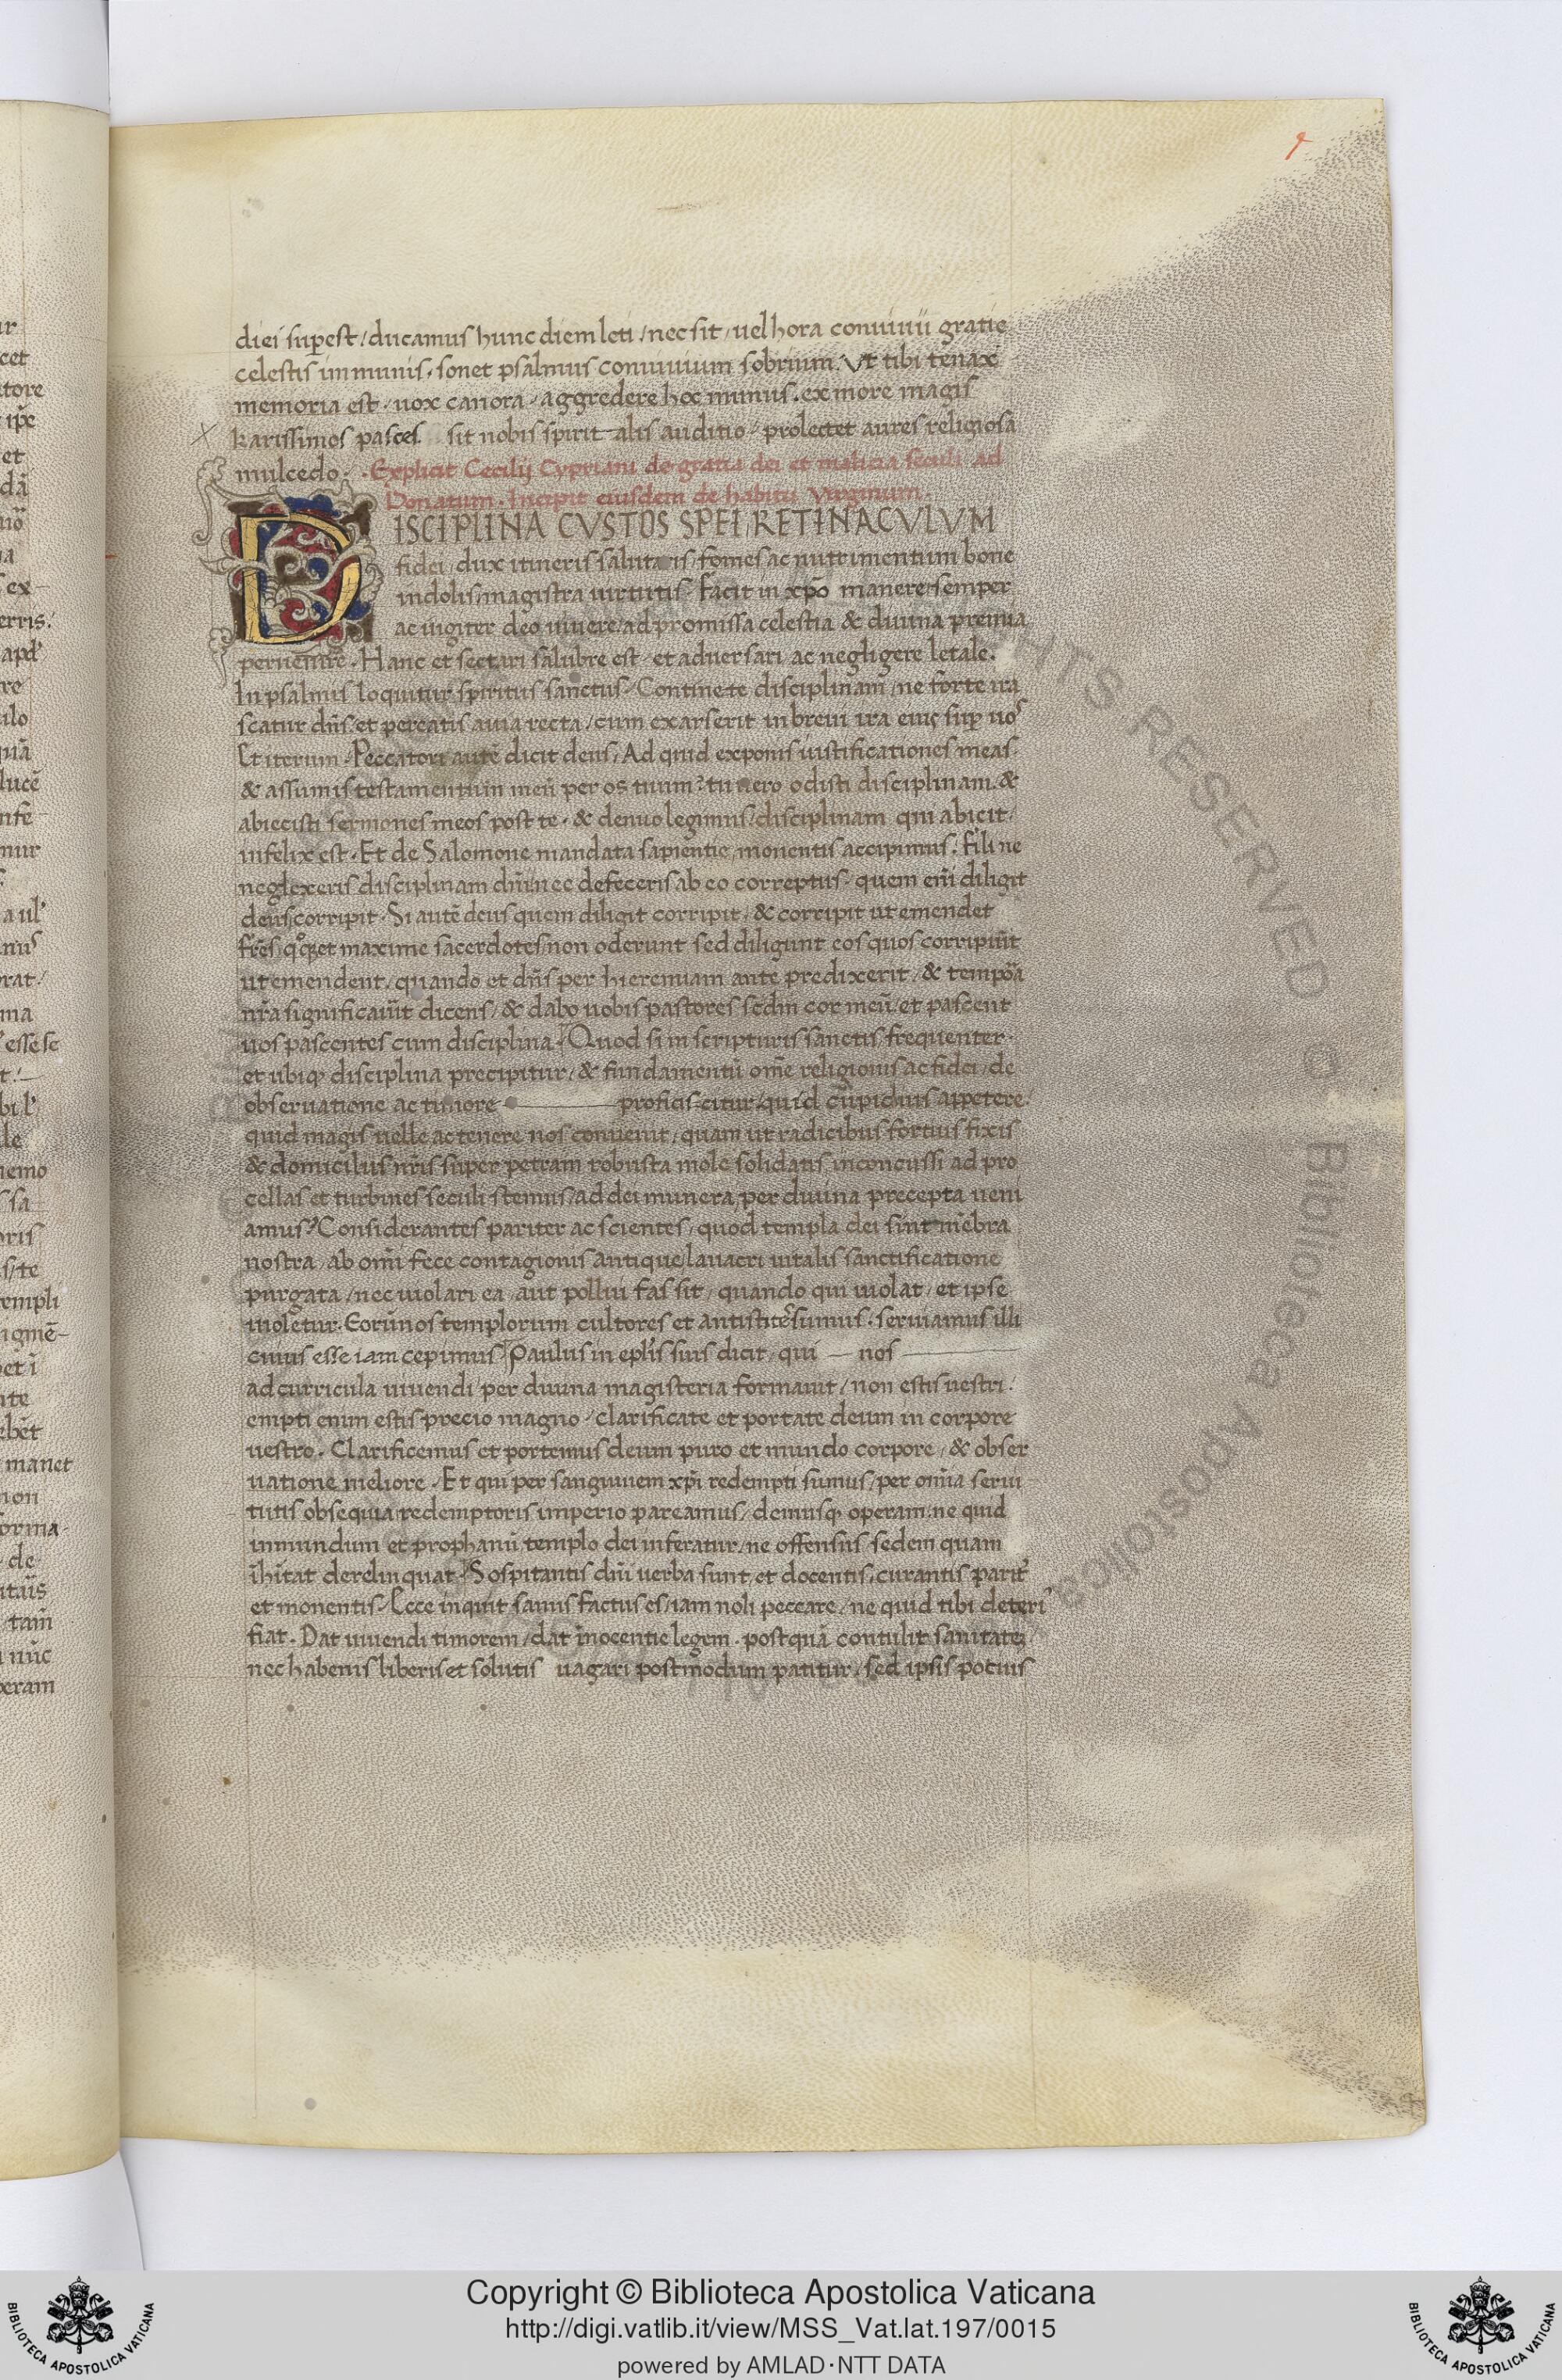 diei sup̱est / ducamus hunc diem leti / nec sit / uel hora conuiuii gratie
celestis immunis . sonet psalmus conuiuium sobrium . Vt tibi tenax
memoria est . uox canora / aggredere hoc munus . ex more magis
karissimos pasces sit nobis spiritalis auditio / prolectet aures religiosa
mulcedo . Explicit Cecilij Cypriani de gratia dei et malicia seculi ad
Donatum . Incipit eiusdem de habitu Virginum .
DISCIPLINA CVSTOS SPEI / RETINACVLVM
fidei / dux itineris salutaris / fomes ac nutrimentum bone
indolis / magistra uirtutis . Facit in xp̄o manere semper
ac iugiter deo uiuere / ad promissa celestia & diuina premia
peruenire . Hanc et sectari salubre est / et aduersari ac negligere letale .
In psalmis loquitur spiritus sanctus / Continete disciplinam / ne forte ira
scatur dn̄s / et pereatis a uia recta / cum exarserit in breui ira eius sup̱ uos
Et iterum . Peccatori autē dicit deus / Ad quid exponis iustificationes meas
& assumis testamentum meū per os tuum ? tu uero odisti disciplinam . &
abiecisti sermones meos post te . & denuo legimus / disciplinam qui abicit /
infelix est . Et de Salomone mandata sapientie monentis accipimus . Fili ne
neglexeris disciplinam dn̄i nec defeceris ab eo correptus / quem eni᷎ diligit
deus corripit . Si autē deus quem diligit corripit / & corripit ut emendet
fr̄es qͦqꝫ et maxime sacerdotes non oderunt sed diligunt eos quos corripiūt
ut emendent / quando et dn̄s per hieremiam ante predixerit / & tempora
nr̄a significauit dicens / & dabo uobis pastores sedm̄ cor meū / et pascent
uos pascentes cum disciplina . Quod si in scripturis sanctis frequenter .
et ubiqꝫ disciplina precipitur / & fundamentū om̄e religionis ac fidei / de
obseruatione ac timore proficiscitur / quid cupidius appetere
quid magis uelle ac tenere nos conuenit / quam ut radicibus fortius fixis
& domiciliis nr̄is super petram robusta mole solidatis inconcussi ad pro
cellas et turbines seculi stemus / ad dei munera per diuina precepta ueni
amus ? Considerantes pariter ac scientes / quod templa dei sint mēbra
nostra / ab omi᷎ fece contagionis antique / lauacri uitalis sanctificatione
purgata / nec uiolari ea aut pollui fas sit / quando qui uiolat / et ipse
uioletur . Eorū nos templorum cultores et antistites sumus . seruiamus illi
cuius esse iam cepimus Paulus in epl̄is suis dicit / qui — nos —
ad curricula uiuendi per diuina magisteria formauit / non estis uestri .
empti enim estis precio magno / clarificate et portate deum in corpore
uestro . Clarificemus et portemus deum puro et mundo corpore / & obser
uatione meliore . Et qui per sanguinem xp̄i redempti sumus / per om̄ia serui
tutis obsequia redemptoris imperio pareamus / demusqꝫ operam ne quid
inmundum et prophanū templo dei inferatur / ne offensus sedem quam
īhītat derelinquat Sospitantis dn̄i uerba sunt et docentis / curantis parit᷑
et monentis . Ecce inquit sanus factus es / iam noli peccare / ne quid tibi deteri᷒
fiat . Dat uiuendi timorem / dat īnocentie legem . postquā contulit sanitatē
nec habenis liberis et solutis uagari postmodum patitur / sed ipsis potius
Copyright © Biblioteca Apostolica Vaticana
http://digi.vatlib.it/view/MSS_Vat.lat.197/0015
powered by AMLAD·NTT DATA
BIBLIOTECA APOSTOLICA VATICANA
BIBLIOTECA APOSTOLICA VATICANA